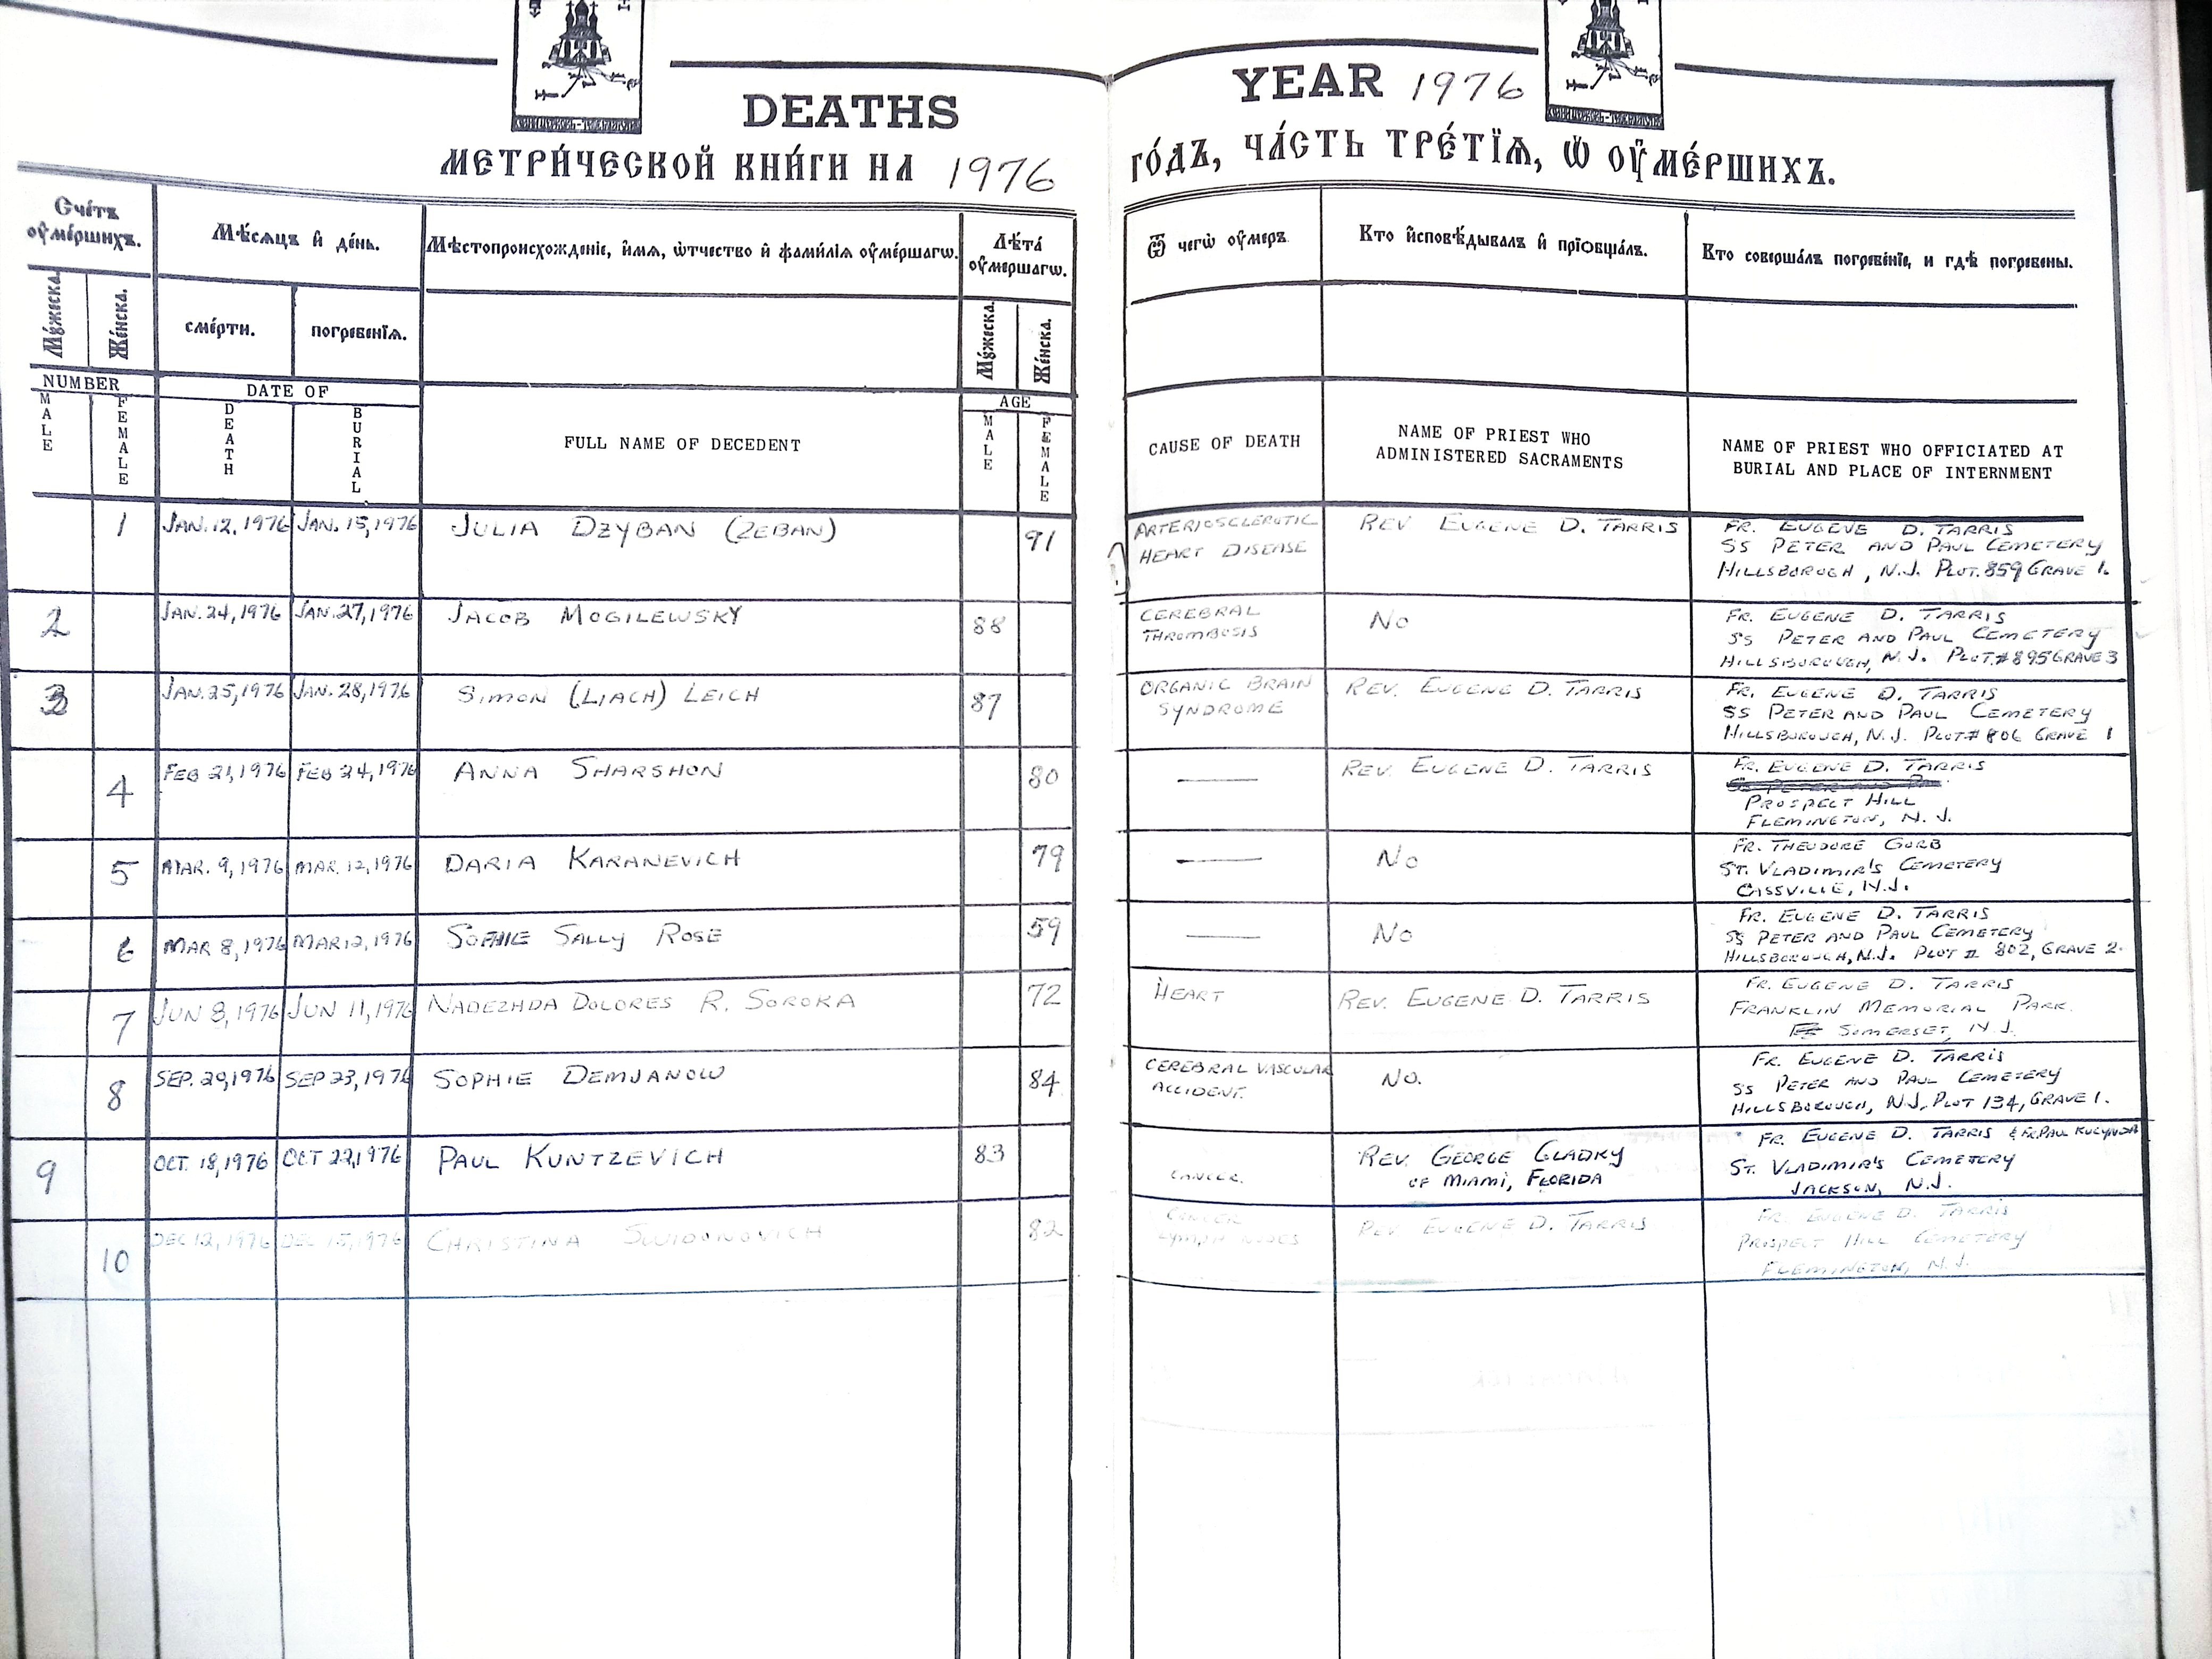 DEATHS
YEAR 1976
МЕТРИ́ЧЕСКОЙ КНИ́ГИ НА 1976
ГО́ДЪ, ЧА́СТЬ ТРЕ́ТЇѦ, Ѿ ОУ҆МЕ́РШИХЪ.
Счётъ оу҆ме́ршихъ.
Мѣ́сяцъ и҆ де́нь.
Мѣстопроисхожденіе, и҆́мя, ѻ҆́тчество и҆ фами́лія оу҆ме́ршагѡ.
Лѣ́та оу҆мершагѡ.
Ѿ чегѡ̀ оу҆меръ.
Кто и҆сповѣ́дывалъ и҆ прїобща́лъ.
Кто соверша́лъ погребе́нїе, и гдѣ̀ погребены.
Му́жеска.
Же́нска.
сме́рти.
погребе́нїѧ.
Му́жеска.
Же́нска.
NUMBER
MALE
FEMALE
DATE OF
DEATH
BURIAL
FULL NAME OF DECEDENT
AGE
MALE
FEMALE
CAUSE OF DEATH
NAME OF PRIEST WHO
ADMINISTERED SACRAMENTS
NAME OF PRIEST WHO OFFICIATED AT
BURIAL AND PLACE OF INTERNMENT
1 JAN. 12, 1976 JAN. 15, 1976 JULIA DZYBAN (ZEBAN) 91
ARTERIOSCLEROTIC
HEART DISEASE
REV EUGENE D. TARRIS
FR. EUGENE D. TARRIS
SS PETER AND PAUL CEMETERY
HILLSBOROUGH, N.J. PLOT. 859 GRAVE 1.
2 JAN. 24, 1976 JAN. 27, 1976 JACOB MOGILEWSKY 88
CEREBRAL
THROMBOSIS
NO
FR. EUGENE D. TARRIS
SS PETER AND PAUL CEMETERY
HILLSBOROUGH, N.J. PLOT. #895 GRAVE 3
3 JAN. 25, 1976 JAN. 28, 1976 SIMON (LIACH) LEICH 87
ORGANIC BRAIN
SYNDROME
REV. EUGENE D. TARRIS
FR. EUGENE D. TARRIS
SS PETER AND PAUL CEMETERY
HILLSBOROUGH, N.J. PLOT# 806 GRAVE 1
4 FEB 21, 1976 FEB 24, 1976 ANNA SHARSHON 80
REV. EUGENE D. TARRIS
FR. EUGENE D. TARRIS
SS PETER AND PA
PROSPECT HILL
FLEMINGTON, N.J.
5 MAR. 9, 1976 MAR. 12, 1976 DARIA KARANEVICH 79
NO
FR. THEODORE GURB
ST. VLADIMIR'S CEMETERY
CASSVILLE, N.J.
6 MAR 8, 1976 MAR 12, 1976 SOPHIE SALLY ROSE 59
NO
FR. EUGENE D. TARRIS
SS PETER AND PAUL CEMETERY
HILLSBOROUGH, N.J. PLOT # 802, GRAVE 2.
7 JUN 8, 1976 JUN 11, 1976 NADEZHDA DOLORES R. SOROKA 72
HEART
REV. EUGENE D. TARRIS
FR. EUGENE D. TARRIS
FRANKLIN MEMORIAL PARK
SOMERSET, N.J.
8 SEP. 20, 1976 SEP 23, 1976 SOPHIE DEMJANOW 84
CEREBRAL VASCULAR
ACCIDENT.
NO.
FR. EUGENE D. TARRIS
SS PETER AND PAUL CEMETERY
HILLSBOROUGH, N.J. PLOT 134, GRAVE 1.
9 OCT. 18, 1976 OCT 22, 1976 PAUL KUNTZEVICH 83
CANCER.
REV. GEORGE GLADKY
OF MIAMI, FLORIDA
FR. EUGENE D. TARRIS & FR. PAUL KUCYNDA
ST. VLADIMIR'S CEMETERY
JACKSON, N.J.
10 DEC 12, 1976 DEC 15, 1976 CHRISTINA SWIDONOVICH 82
CANCER
LYMPH NODES
REV EUGENE D. TARRIS
FR. EUGENE D. TARRIS
PROSPECT HILL CEMETERY
FLEMINGTON, N.J.